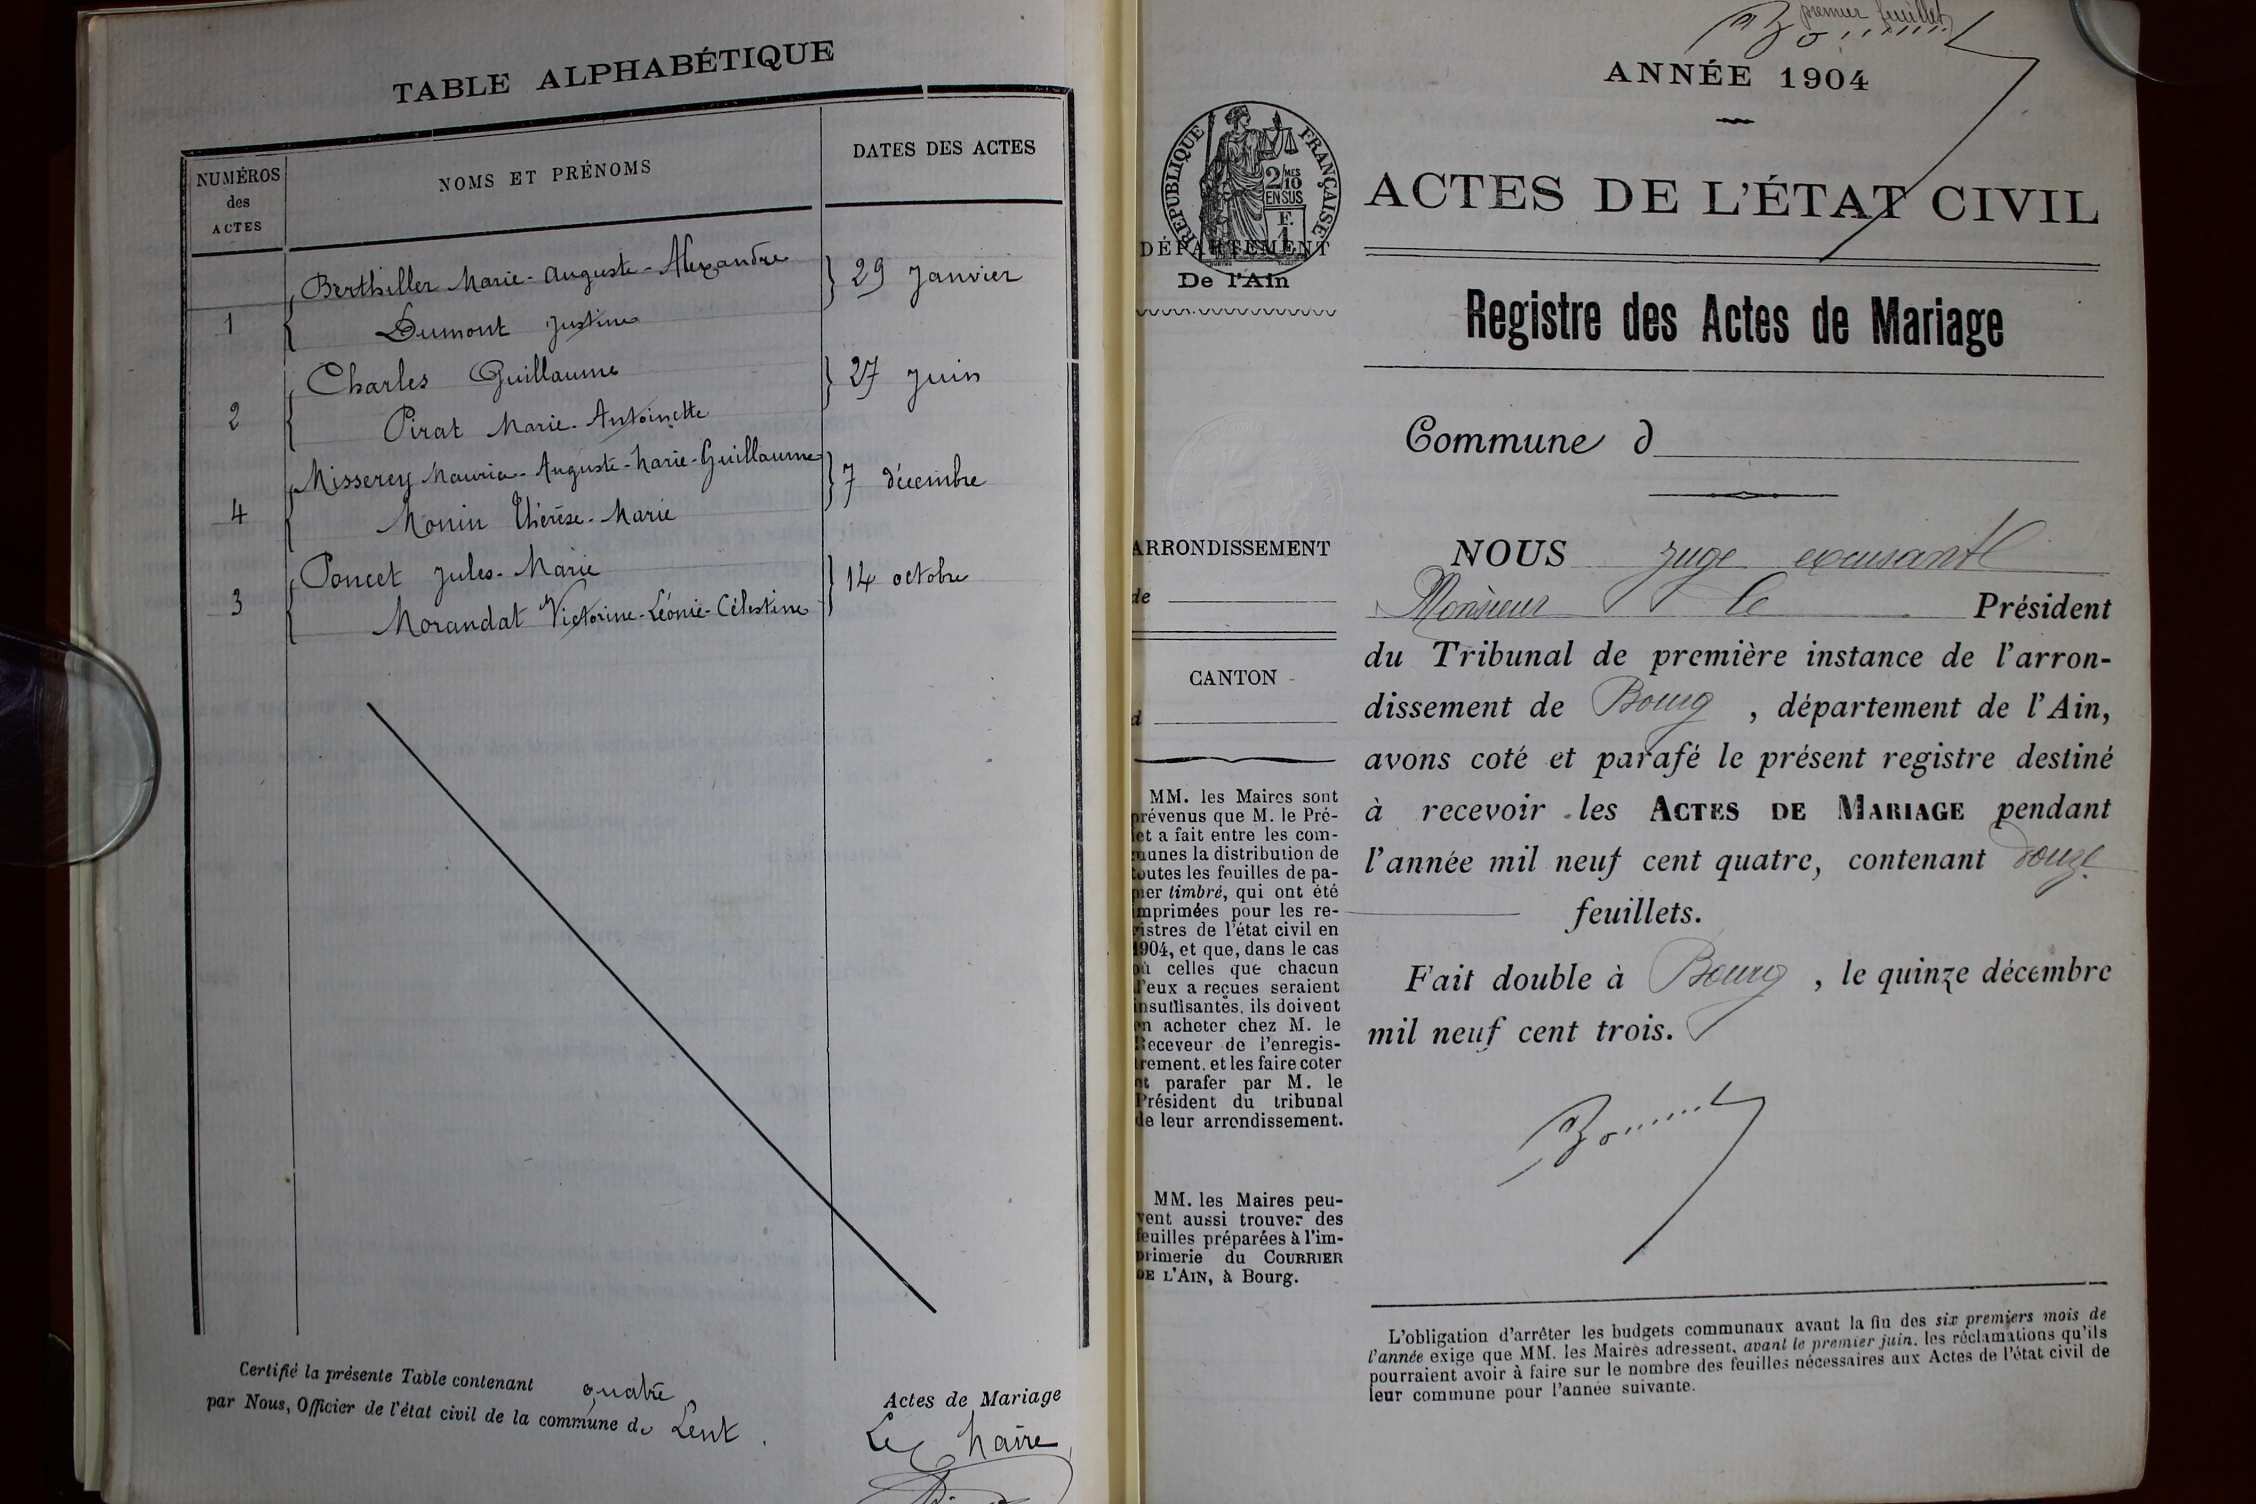 TABLE ALPHABÉTIQUE
NUMÉROS
des
ACTES
NOMS ET PRÉNOMS
DATES DES ACTES
Berthiller Marie-Auguste-Alexandre
29 Janvier
1
Dumont Justine
Charles Guillaume
27 Juin
2
Pirat Marie-Antoinette
Misserey Maurice-Auguste-Marie-Guillaume
7 décembre
4
Monin Thérèse-Marie
Poncet Jules-Marie
14 octobre
3
Morandat Victorine-Léonie-Célestine
Certifié la présente Table contenant quatre Actes de Mariage
par Nous, Officier de l'état civil de la commune de Lent.
Le Maire
premier feuillet
ANNÉE 1904
RÉPUBLIQUE FRANÇAISE
2/10 MES
EN SUS
F.
1
ACTES DE L'ÉTAT CIVIL
DÉPARTEMENT
De l'Ain
Registre des Actes de Mariage
Commune d
ARRONDISSEMENT
de
CANTON
d
MM. les Maires sont
prévenus que M. le Pré-
fet a fait entre les com-
munes la distribution de
toutes les feuilles de pa-
pier timbré, qui ont été
imprimées pour les re-
gistres de l'état civil en
1904, et que, dans le cas
où celles que chacun
d'eux a reçues seraient
insuffisantes, ils doivent
en acheter chez M. le
Receveur de l'enregis-
trement, et les faire coter
et parafer par M. le
Président du tribunal
de leur arrondissement.
MM. les Maires peu-
vent aussi trouver des
feuilles préparées à l'im-
primerie du COURRIER
DE L'AIN, à Bourg.
NOUS Juge excusant
Monsieur le Président
du Tribunal de première instance de l'arron-
dissement de Bourg, département de l'Ain,
avons coté et parafé le présent registre destiné
à recevoir les ACTES DE MARIAGE pendant
l'année mil neuf cent quatre, contenant douze
feuillets.
Fait double à Bourg, le quinze décembre
mil neuf cent trois.
L'obligation d'arrêter les budgets communaux avant la fin des six premiers mois de
l'année exige que MM. les Maires adressent, avant le premier juin, les réclamations qu'ils
pourraient avoir à faire sur le nombre des feuilles nécessaires aux Actes de l'état civil de
leur commune pour l'année suivante.